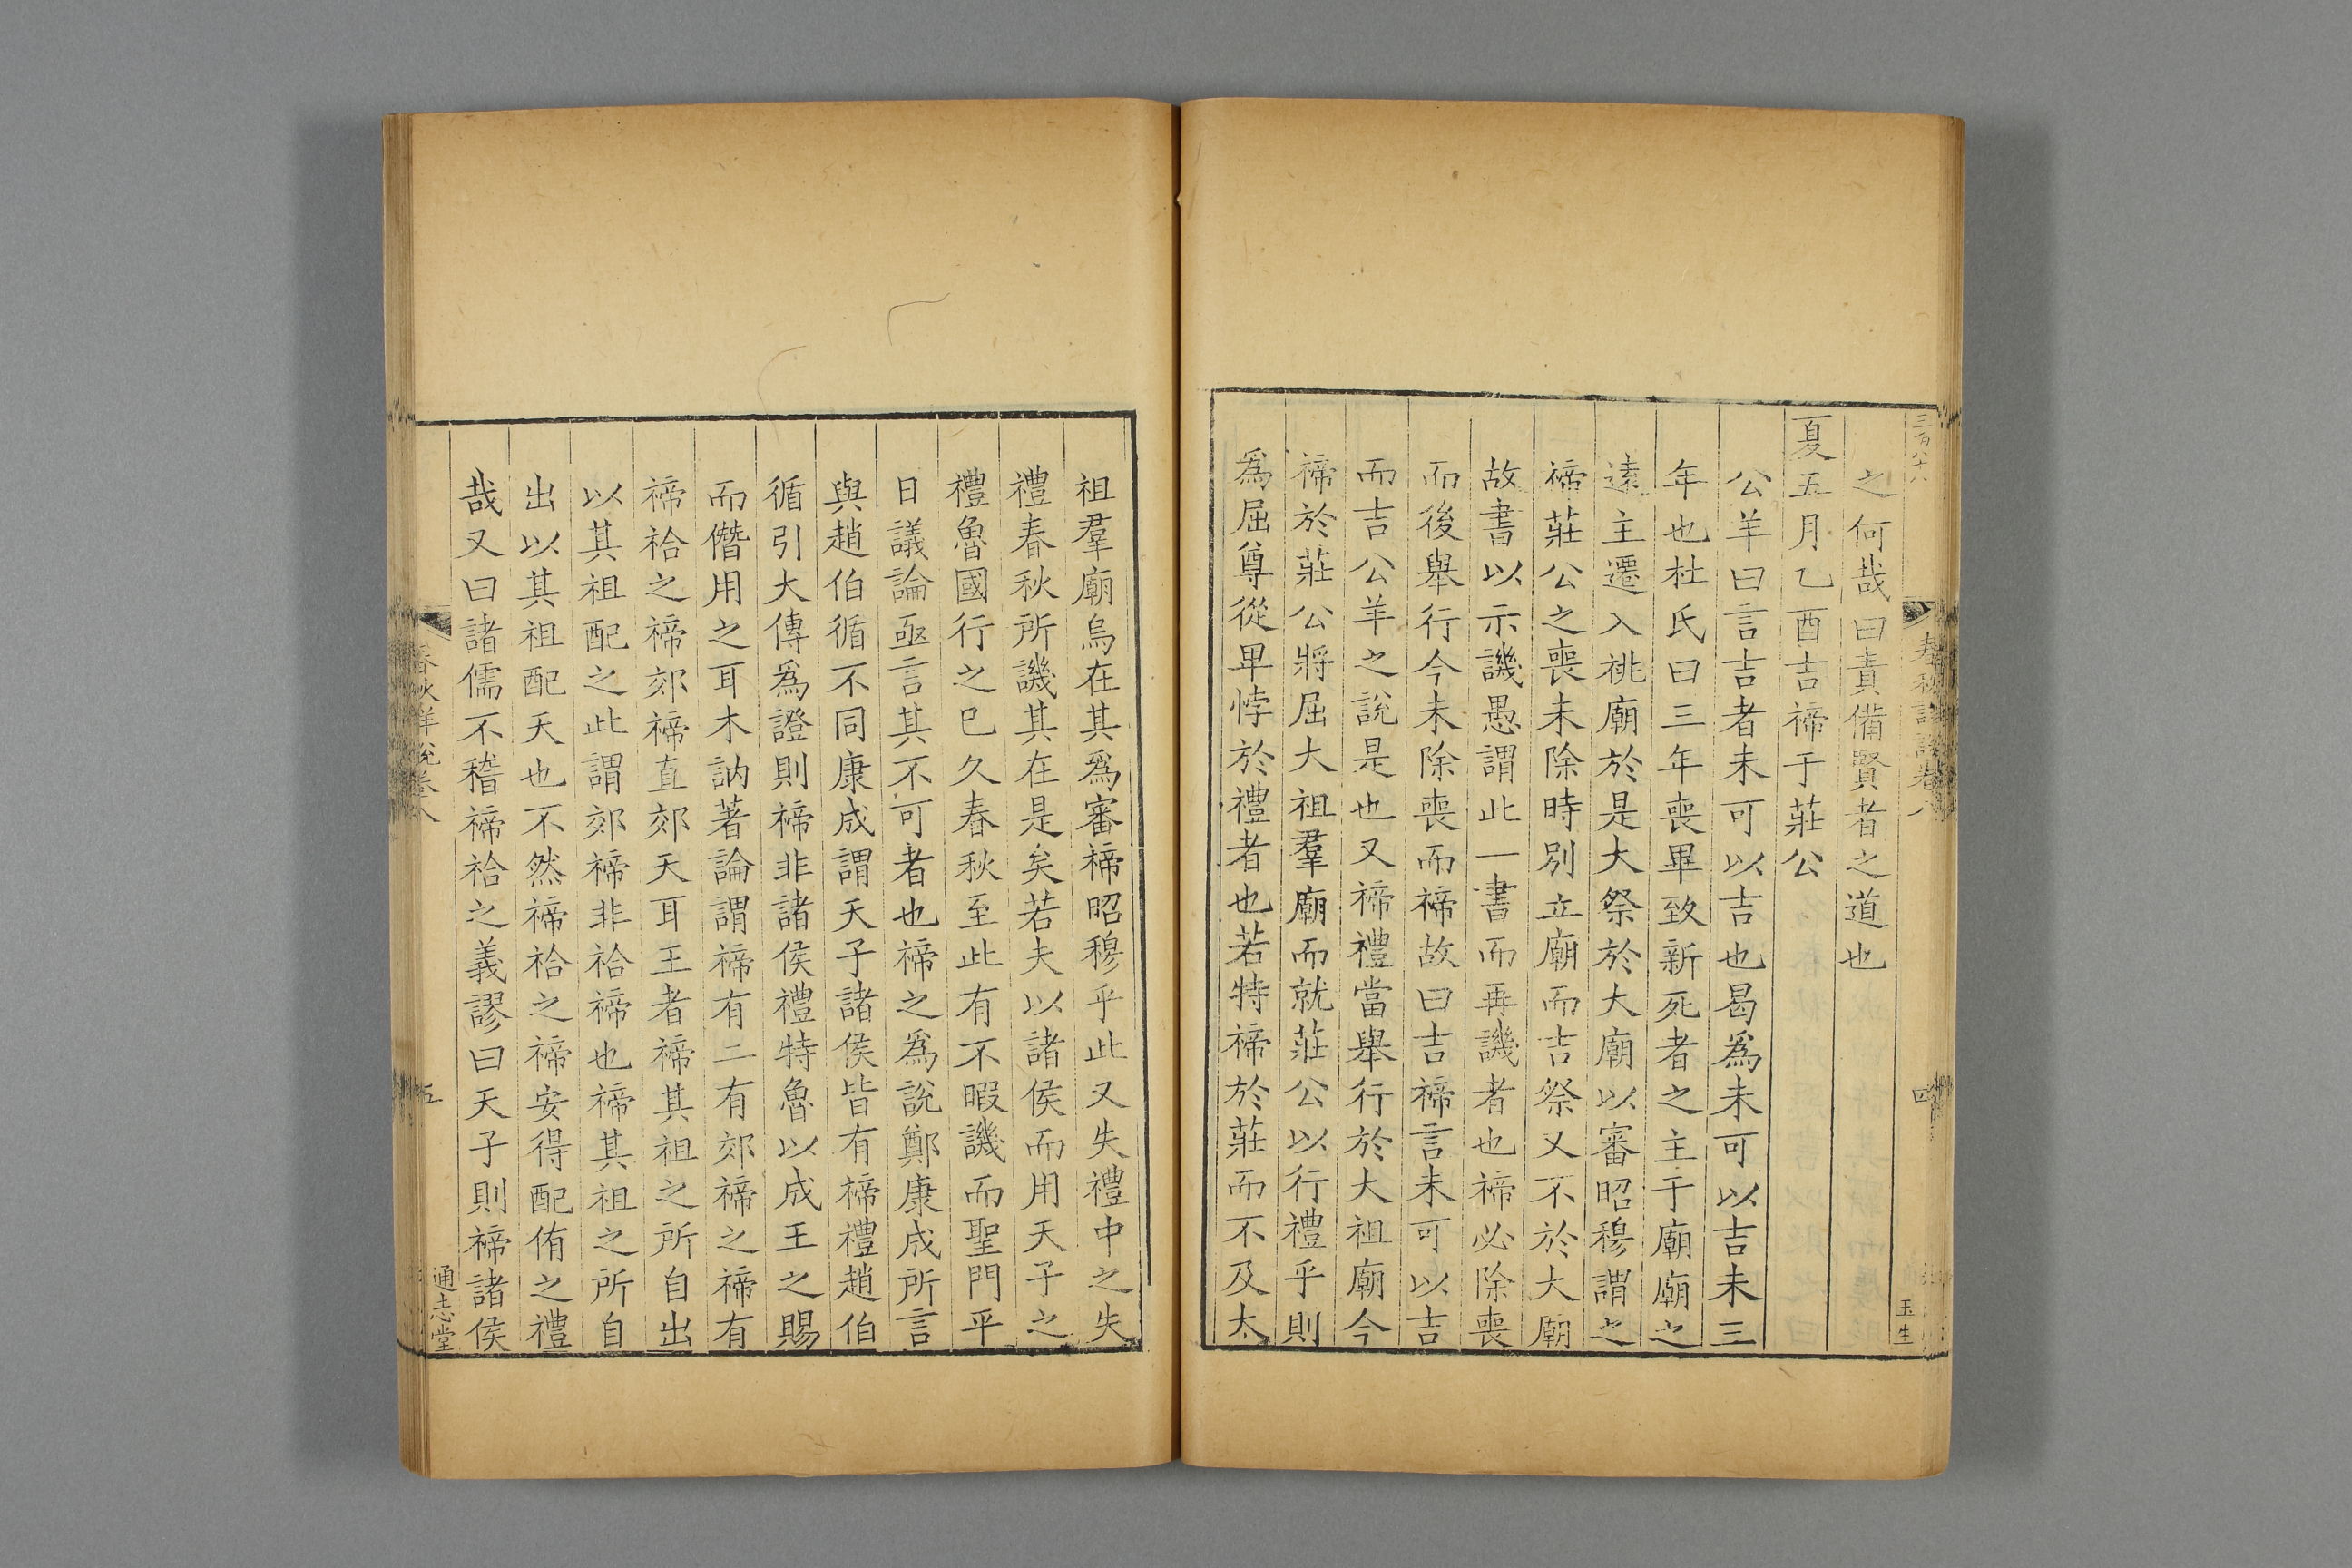 三百八十六
春秋詳説卷八
四
玉生
之何哉曰責備賢者之道也
夏五月乙酉吉禘于莊公
公羊曰言吉者未可以吉也曷爲未可以吉未三
年也杜氏曰三年喪畢致新死者之主于廟廟之
遠主遷入祧廟於是大祭於大廟以審昭穆謂之
禘莊公之喪未除時別立廟而吉祭又不於大廟
故書以示譏愚謂此一書而再譏者也禘必除喪
而後舉行今未除喪而禘故曰吉禘言未可以吉
而吉公羊之說是也又禘禮當舉行於大祖廟今
禘於莊公將屈大祖羣廟而就莊公以行禮乎則
爲屈尊從卑悖於禮者也若特禘於莊而不及太
祖羣廟烏在其爲審禘昭穆乎此又失禮中之失
禮春秋所譏其在是矣若夫以諸侯而用天子之
禮魯國行之已久春秋至此有不暇譏而聖門平
日議論亟言其不可者也禘之爲說鄭康成所言
與趙伯循不同康成謂天子諸侯皆有禘禮趙伯
循引大傳爲證則禘非諸侯禮特魯以成王之賜
而僭用之耳木訥著論謂禘有二有郊禘之禘有
禘祫之禘郊禘直郊天耳王者禘其祖之所自出
以其祖配之此謂郊禘非祫禘也禘其祖之所自
出以其祖配天也不然禘祫之禘安得配侑之禮
哉又曰諸儒不稽禘祫之義謬曰天子則禘諸侯
春秋詳說卷八
五
通志堂